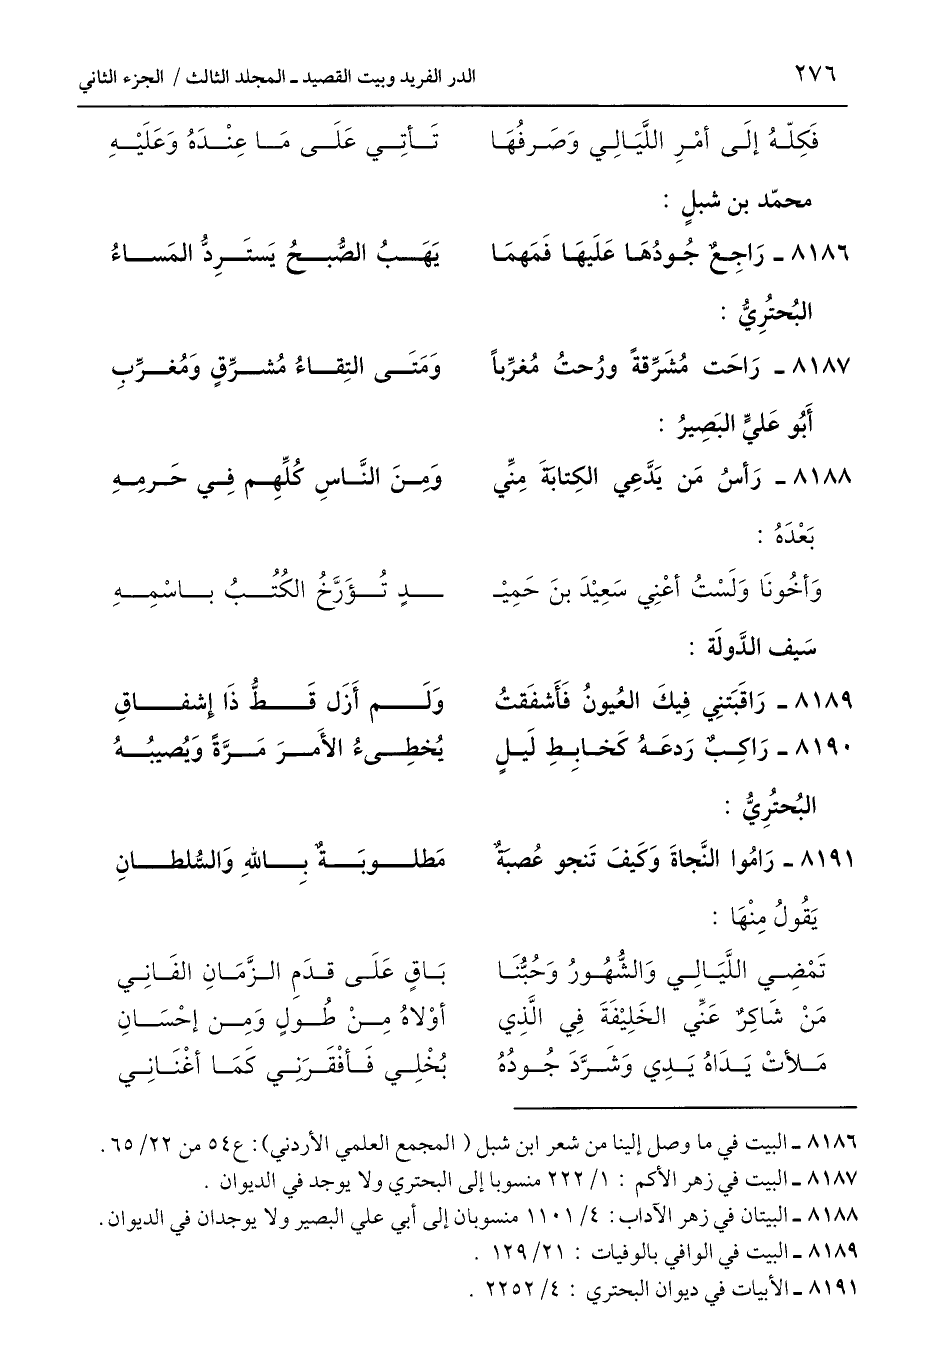 ٢٧٦ الدر الفريد وبيت القصيد ـ المجلد الثالث / الجزء الثاني
فَكِلّهُ إلَى أمْرِ اللَّيَالِي وَصَرفُهَا تَأتِي عَلَى مَا عِنْدَهُ وَعَلَيْهِ
محمّد بن شبلٍ :
٨١٨٦ ـ رَاجِعٌ جُودُهَا عَلَيهَا فَمَهمَا يَهَبُ الصُّبحُ يَستَرِدُّ المَسَاءُ
البُحتُرِيُّ :
٨١٨٧ ـ رَاحَت مُشَرِّقةً ورُحتُ مُغرِّباً وَمَتَى التِقاءُ مُشرِّقٍ وَمُغرِّبِ
أَبُو عَليٍّ البَصِيرُ :
٨١٨٨ ـ رَأسُ مَن يَدَّعِي الكِتابَةَ مِنِّي وَمِنَ النَّاسِ كُلِّهِم فِي حَرمِهِ
بَعْدَهُ :
وَأخُونَا وَلَسْتُ أعْنِي سَعِيْدَ بنَ حَمِيْـ ـدٍ تُؤَرَّخُ الكُتُبُ بِاسْمِهِ
سَيف الدَّولَة :
٨١٨٩ ـ رَاقَبَتنِي فِيكَ العُيونُ فَأَشفَقتُ وَلَم أَزَل قَطُّ ذَا إِشفَاقِ
٨١٩٠ ـ رَاكِبٌ رَدعَهُ كَخابِطِ لَيلٍ يُخطِىءُ الأَمرَ مَرَّةً وَيُصيبُهُ
البُحتُرِيُّ :
٨١٩١ ـ رَامُوا النَّجاةَ وَكَيفَ تَنجو عُصبَةٌ مَطلوبَةٌ بِاللهِ وَالسُّلطانِ
يَقُولُ مِنْهَا :
تَمْضِي اللَّيَالِي وَالشُّهُورُ وَحُبُّنَا بَاقٍ عَلَى قدَمِ الزَّمَانِ الفَانِي
مَنْ شَاكِرٌ عَنِّي الخَلِيْفَةَ فِي الَّذِي أوْلاهُ مِنْ طُولٍ وَمِن إحْسَانِ
مَلأتْ يَدَاهُ يَدِي وَشَرَّدَ جُودُهُ بُخْلِي فَأفْقَرَنِي كَمَا أغْنَانِي
٨١٨٦ ـ البيت في ما وصل إلينا من شعر ابن شبل ( المجمع العلمي الأردني): ع٥٤ من ٢٢/ ٦٥.
٨١٨٧ ـ البيت في زهر الأكم : ١/ ٢٢٢ منسوبا إلى البحتري ولا يوجد في الديوان .
٨١٨٨ ـ البيتان في زهر الآداب: ٤/ ١١٠١ منسوبان إلى أبي علي البصير ولا يوجدان في الديوان.
٨١٨٩ ـ البيت في الوافي بالوفيات : ٢١/ ١٢٩ .
٨١٩١ ـ الأبيات في ديوان البحتري : ٤/ ٢٢٥٢ .